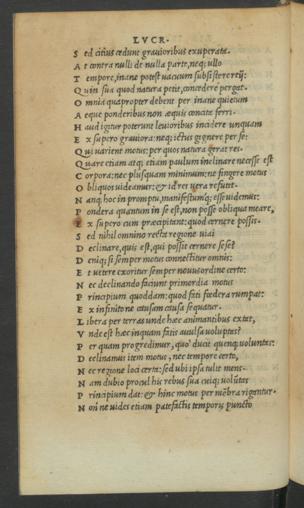 LVCR.
S ed citius cedunt grauioribus exuperata.
A t contra nulli de nulla parte, neq; ullo
T empore, inane potest uacuum subsistere rerū:
Q uin sua quod natura petit, concedere pergat.
O mnia quapropter debent per inane quietum
A eque ponderibus non æquis concita ferri.
H aud igitur poterunt leuioribus incidere unquam
E x supero grauiora: neq; ictus gignere per se:
Q ui uarient motus: per quos natura gerat res.
Q uare etiam atq; etiam paulum inclinare necesse est
C orpora: nec plusquam minimum: ne fingere motus
O bliquos uideamur: & id res uera refutet.
N anq; hoc in promptu, manifestumq; esse uidemus:
P ondera quantum in se est, non posse obliqua meare,
E x supero cum præcipitant: quod cernere possis.
S ed nihil omnino recta regione uiai
D eclinare, quis est, qui possit cernere sese?
D eniq; si semper motus connectitur omnis:
E t uetere exoritur semper nouus ordine certo:
N ec declinando faciunt primordia motus
P rincipium quoddam: quod fati fœdera rumpat:
E x infinito ne causam causa sequatur.
L ibera per terras unde hæc animantibus extat,
V nde est hæc inquam fatis auulsa uoluptas?
P er quam progredimur, quo' ducit quenq; uoluntas:
D eclinamus item motus, nec tempore certo,
N ec regione loci certa: sed ubi ipsa tulit mens.
N am dubio procul his rebus sua cuiq; uolūtas
P rincipium dat: & hinc motus per mēbra rigantur.
N on ne uides etiam patefactis temporis puncto